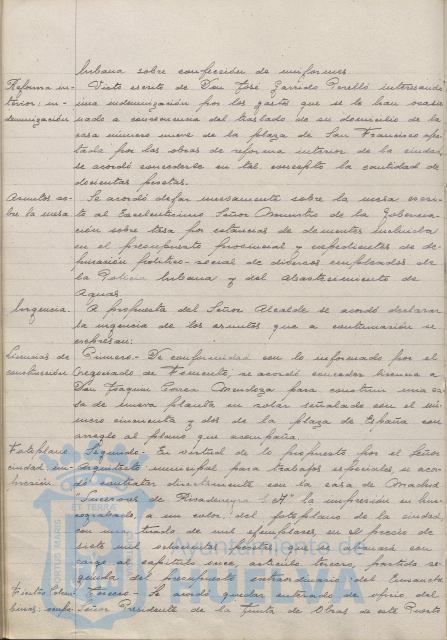 Urbana sobre confección de uniformes
Reforma in- Visto escrito de Don José Garrido Perelló interesando
terior: in- una indemnización por los gastos que se le han ocasio
demnización nado a consecuencia del traslado de su domicilio de la
casa número nueve de la plaza de San Francisco afec
tada por las obras de reforma interior de la ciudad,
se acordó concederle en tal concepto la cantidad de
doscientas pesetas.
Asuntos so- Se acordó dejar nuevamente sobre la mesa escri-
bre la mesa to al Excelentísimo Señor Ministro de la Goberna-
ción sobre tasa por estancias de dementes incluida
en el presupuesto provincial y expedientes de de-
puración político-social de diversos empleados de
la Policía Urbana y del Abastecimiento de
Aguas.
Urgencia. A propuesta del Señor Alcalde se acordó declarar
la urgencia de los asuntos que a continuación se
expresan:
Licencias de Primero- De conformidad con lo informado por el
construcción Negociado de Fomento, se acordó conceder licencia a
Don Joaquín Correa Mendoza para construir una ca
sa de nueva planta en solar señalado con el nú-
mero cincuenta y dos de la plaza de España con
arreglo al plano que acompaña.
Fotoplano Segundo- En virtud de lo propuesto por el Señor
ciudad: im- Arquitecto municipal para trabajos especiales, se acor
presión dó contratar directamente con la casa de Madrid
"Sucesores de Rivadeneyra S.A" la impresión en hue
cograbado, a un color, del fotoplano de la ciudad,
con una tirada de mil ejemplares en el precio de
siete mil pesetas que se abonará con
cargo al capítulo once, artículo tercero, partida se
gunda del presupuesto extraordinario del Ensanche
Tercero- Se acordó quedar enterado de oficio del
Señor Presidente de la Junta de Obras de este Puerto
Ayuntamiento de
HUELVA